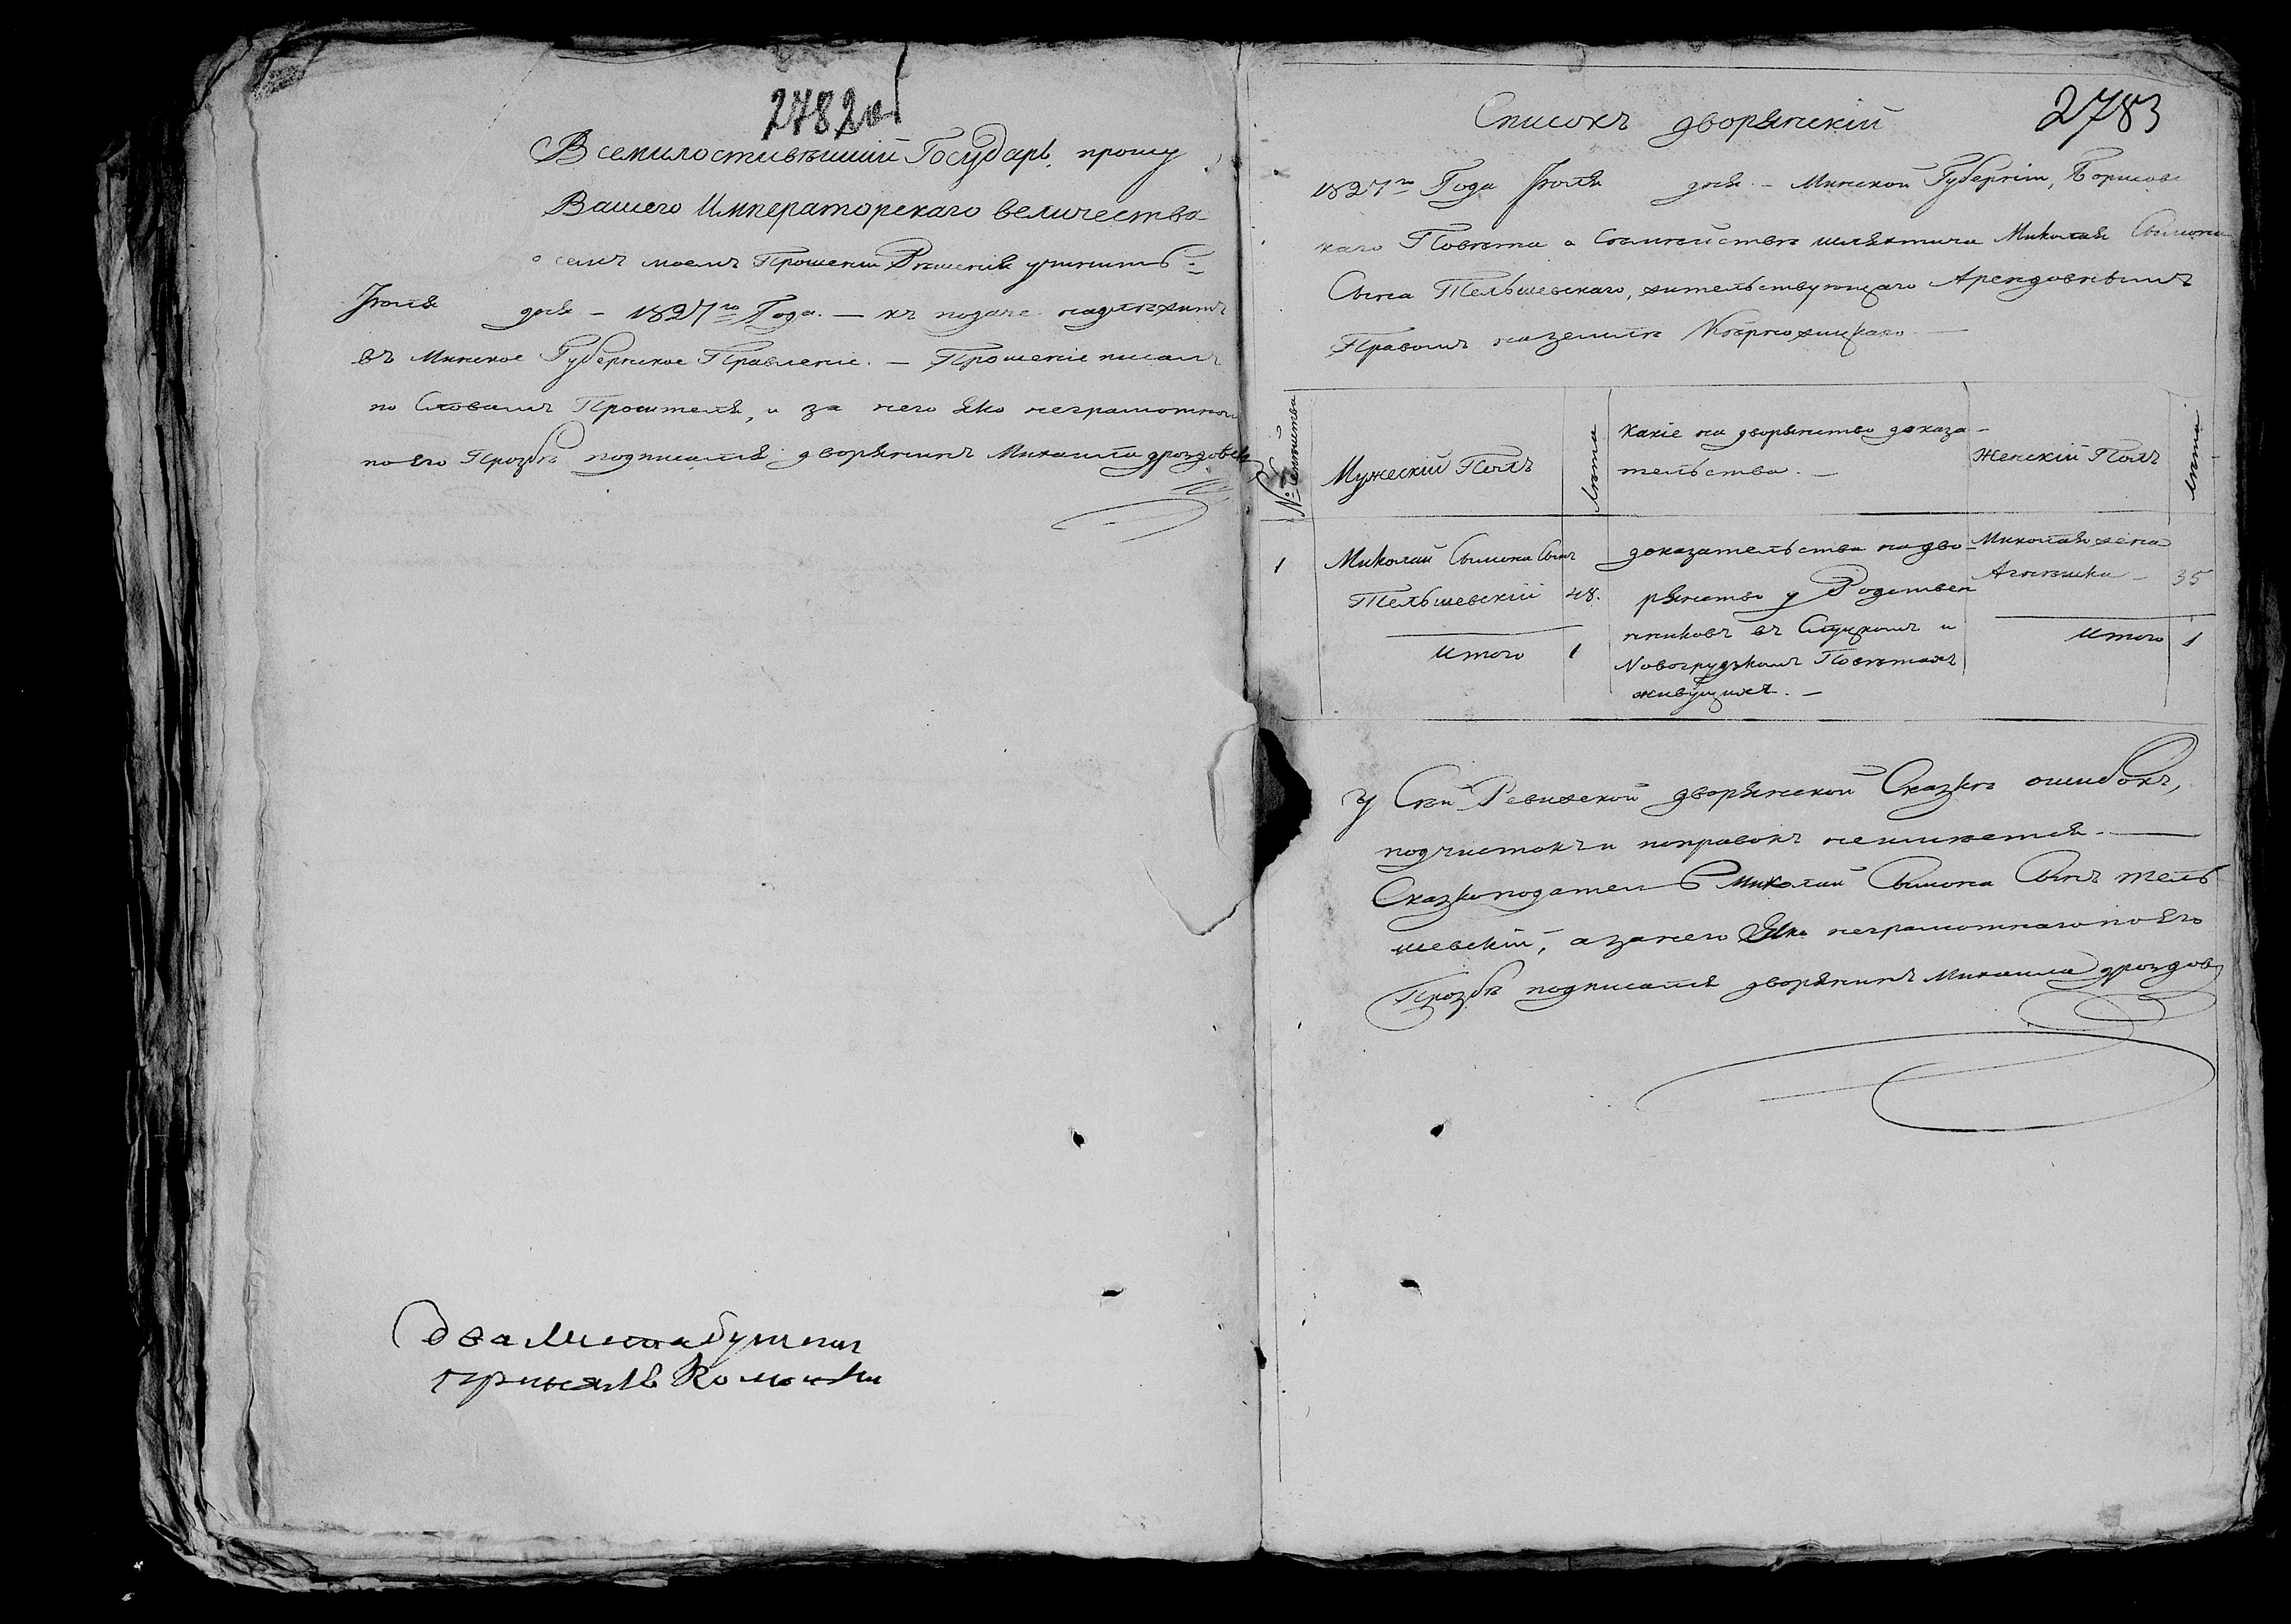 2782об
Всемилостивѣишій Государь, прошу
Вашего Императорскаго величества
о семъ моемъ Прошеніи Рѣшенія учинить
Іюля дня – 1827го Года. – къ подаче надлѣжитъ
въ Минское Губернское Правленіе. – Прошеніе писалъ
по Словамъ Просителя, и за него яко неграмотного
по Его Прозбѣ подписался дворянинъ Михаила дроздовскій
два листа бумаги
2783
Списокъ дворянскій
1827го Года Іюля дня – Минской Губерніи, Борисовс
каго Повѣта о Сѣмействѣ шляхтича Миколая Сымона
Сына Тельшевскаго, жительствующаго Арендовнымъ
Правомъ на землѣ
№ Семѣйства
Мужескій Полъ
Лѣта
Какіе на дворянство доказа–
тельства. –
Женскій Полъ
лѣта
1
Миколай Сымона Сынъ
Тельшевскій 48.
Итого 1
доказательства на дво–
рянство у Родствен
никовъ въ Слуцкомъ и
Новогрудзкомъ Повѣтахъ
живущихъ. –
Миколая жена
Агнѣшка – 35
Итого 1
У Сей Ревизской дворянской Сказкѣ ошибокъ,
подчистокъ и поправокъ неимѣется. –
Сказкоподатель Миколай Сымона Сынъ тель
шевскій, а за него Яко неграмотнаго по Его
Прозбѣ подписался дворянинъ Михаила дроздов